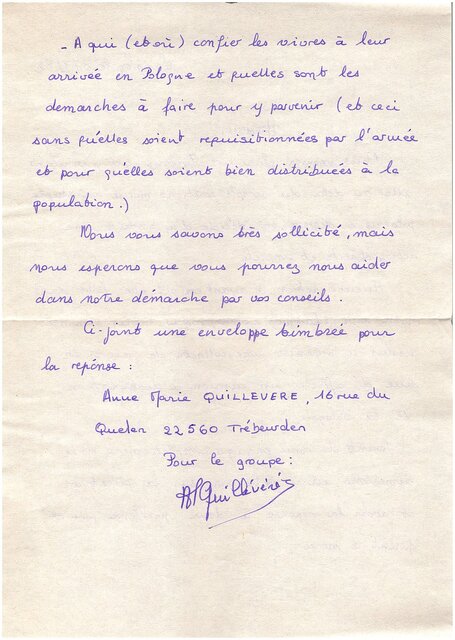 - A qui (et où) confier les vivres à leur
arrivée en Pologne et quelles sont les
demarches à faire pour y parvenir (et ceci
sans qu'elles soient requisitionnées par l'armée
et pour qu'elles soient bien distribuées à la
population.)
Nous vous savons très sollicité, mais
nous esperons que vous pourrez nous aider
dans notre démarche par vos conseils.
Ci-joint une enveloppe timbrée pour
la reponse :
Anne Marie QUILLEVERE, 16 rue du
Quelen 22560 Trébeurden
Pour le groupe :
AMQuillévéré